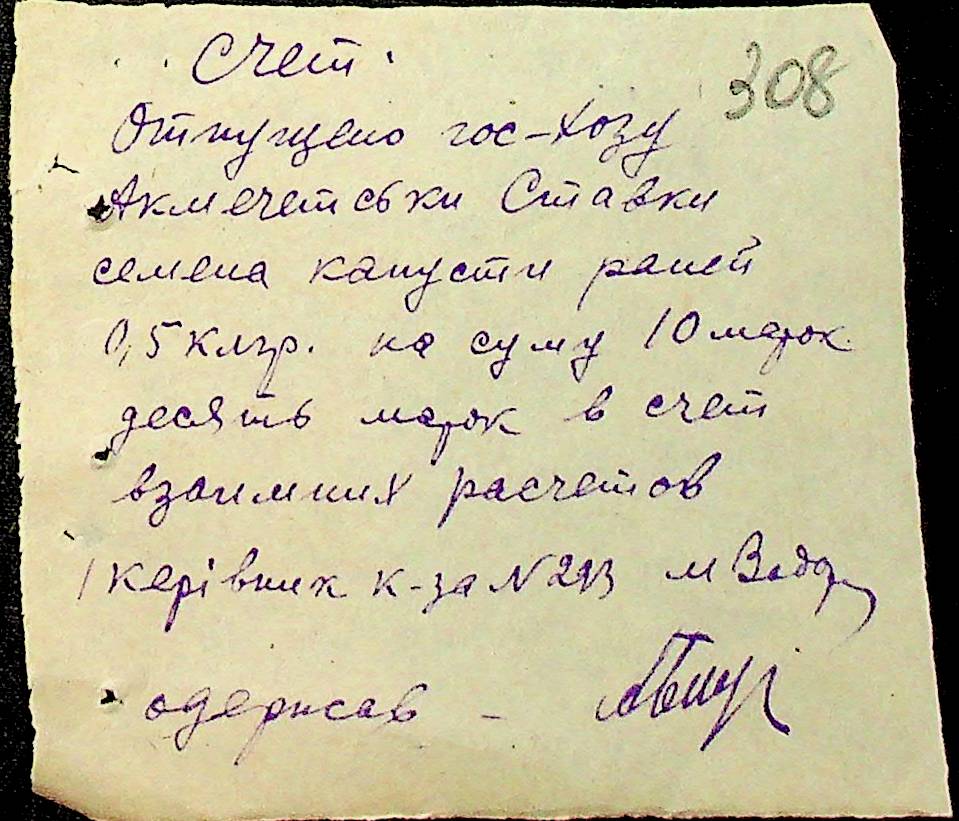 Счет.
308
Отпущено гос-хозу
Акмечетськи Ставки
семена капусти раней
0,5 клгр. на суму 10 марок
десять марок в счет
взаимних расчетов
керівник к-за N 293
одержав -